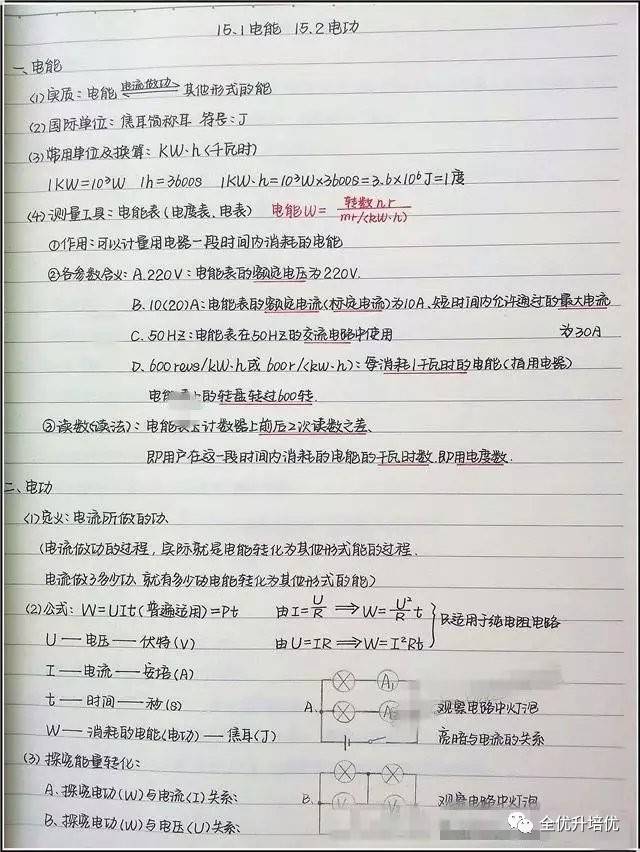 15.1电能 15.2电功
一、电能
(1)实质：电能 电流做功 其他形式的能
(2)国际单位：焦耳简称耳 符号：J
(3)常用单位及换算：KW·h(千瓦时)
1KW=10³W 1h=3600s 1KW·h=10³W×3600s=3.6×10⁶J=1度
(4)测量工具：电能表(电度表、电表) 电能W= 转数n r / mr/(kW·h)
①作用：可以计量用电器一段时间内消耗的电能
②各参数含义：A.220V：电能表的额定电压为220V.
B.10(20)A：电能表的额定电流(标定电流)为10A、短时间内允许通过的最大电流
为30A
C.50HZ：电能表在50HZ的交流电路中使用
D.600revs/kW·h或600r/(kW·h)：每消耗1千瓦时的电能(指用电器)
电能 上的转盘转过600转.
③读数(读法)：电能 计数器上前后2次读数之差、
即用户在这一段时间内消耗的电能的千瓦时数.即用电度数.
二、电功
(1)定义：电流所做的功、
(电流做功的过程，实际就是电能转化为其他形式能的过程.
电流做了多少功、就有多少电能转化为其他形式的能)
(2)公式：W=UIt(普遍适用)=Pt 由I=U/R ⟹ W=U²/R t
只适用于纯电阻电路
U — 电压 — 伏特(V) 由U=IR ⟹ W=I²Rt
I — 电流 — 安培(A)
t — 时间 — 秒(s)
W — 消耗的电能(电功) — 焦耳(J)
A. A₁
观察电路中灯泡
亮暗与电流的关系
(3)探究能量转化：
A、探究电功(W)与电流(I)关系：
B、探究电功(W)与电压(U)关系：
B. 观察电路中灯泡
全优升培优